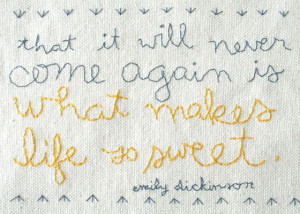 that it will never
come again is
what makes
life so sweet.
emily dickinson